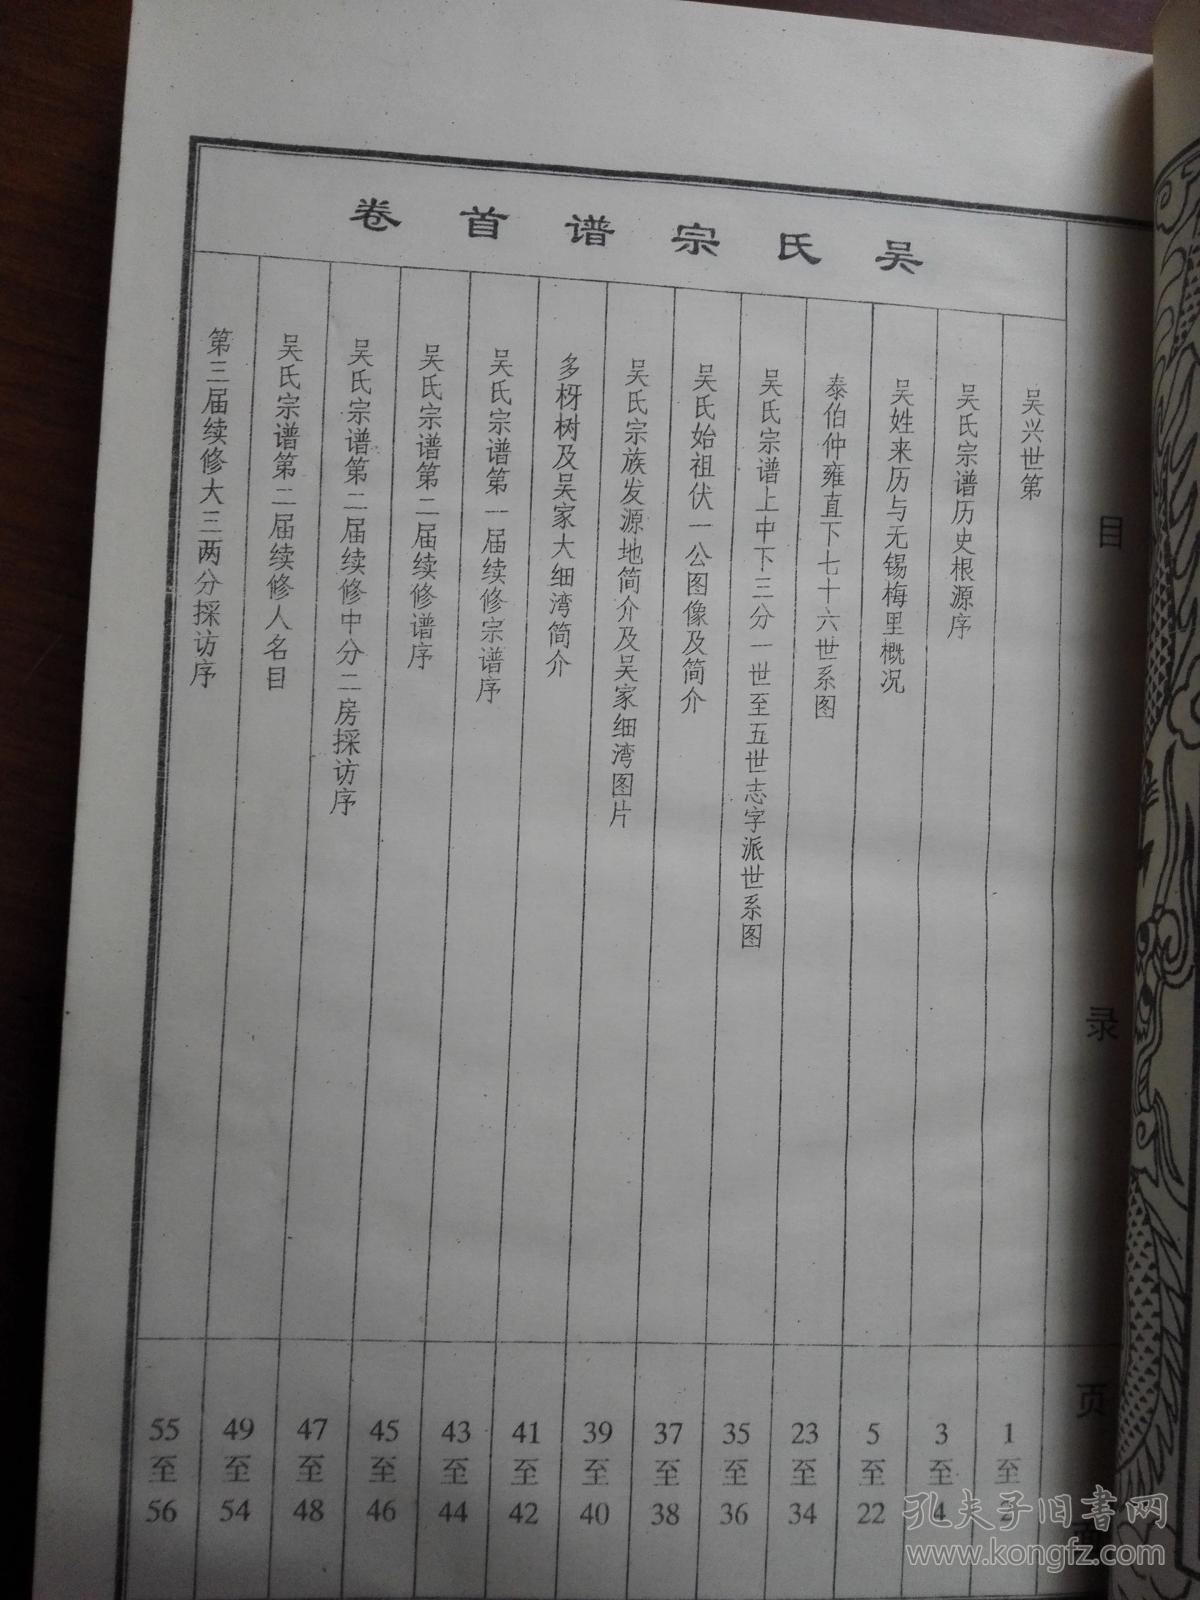 吴氏宗谱首卷
目录
页面
吴兴世第
1至2
吴氏宗谱历史根源序
3至4
吴姓来历与无锡梅里概况
5至22
泰伯仲雍直下七十六世系图
23至34
吴氏宗谱上中下三分一世至五世志字派世系图
35至36
吴氏始祖伏一公图像及简介
37至38
吴氏宗族发源地简介及吴家细湾图片
39至40
多枒树及吴家大细湾简介
41至42
吴氏宗谱第一届续修宗谱序
43至44
吴氏宗谱第二届续修谱序
45至46
吴氏宗谱第二届续修中分二房採访序
47至48
吴氏宗谱第二届续修人名目
49至54
第三届续修大三两分採访序
55至56
孔夫子旧书网
www.kongfz.com